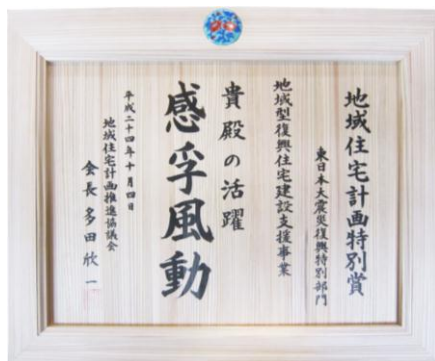 地域住宅計画特別賞
東日本大震災復興特別部門
地域型復興住宅建設支援事業
貴殿の活躍
感孚風動
平成二十四年十月四日
地域住宅計画推進協議会
会長 多田欣一